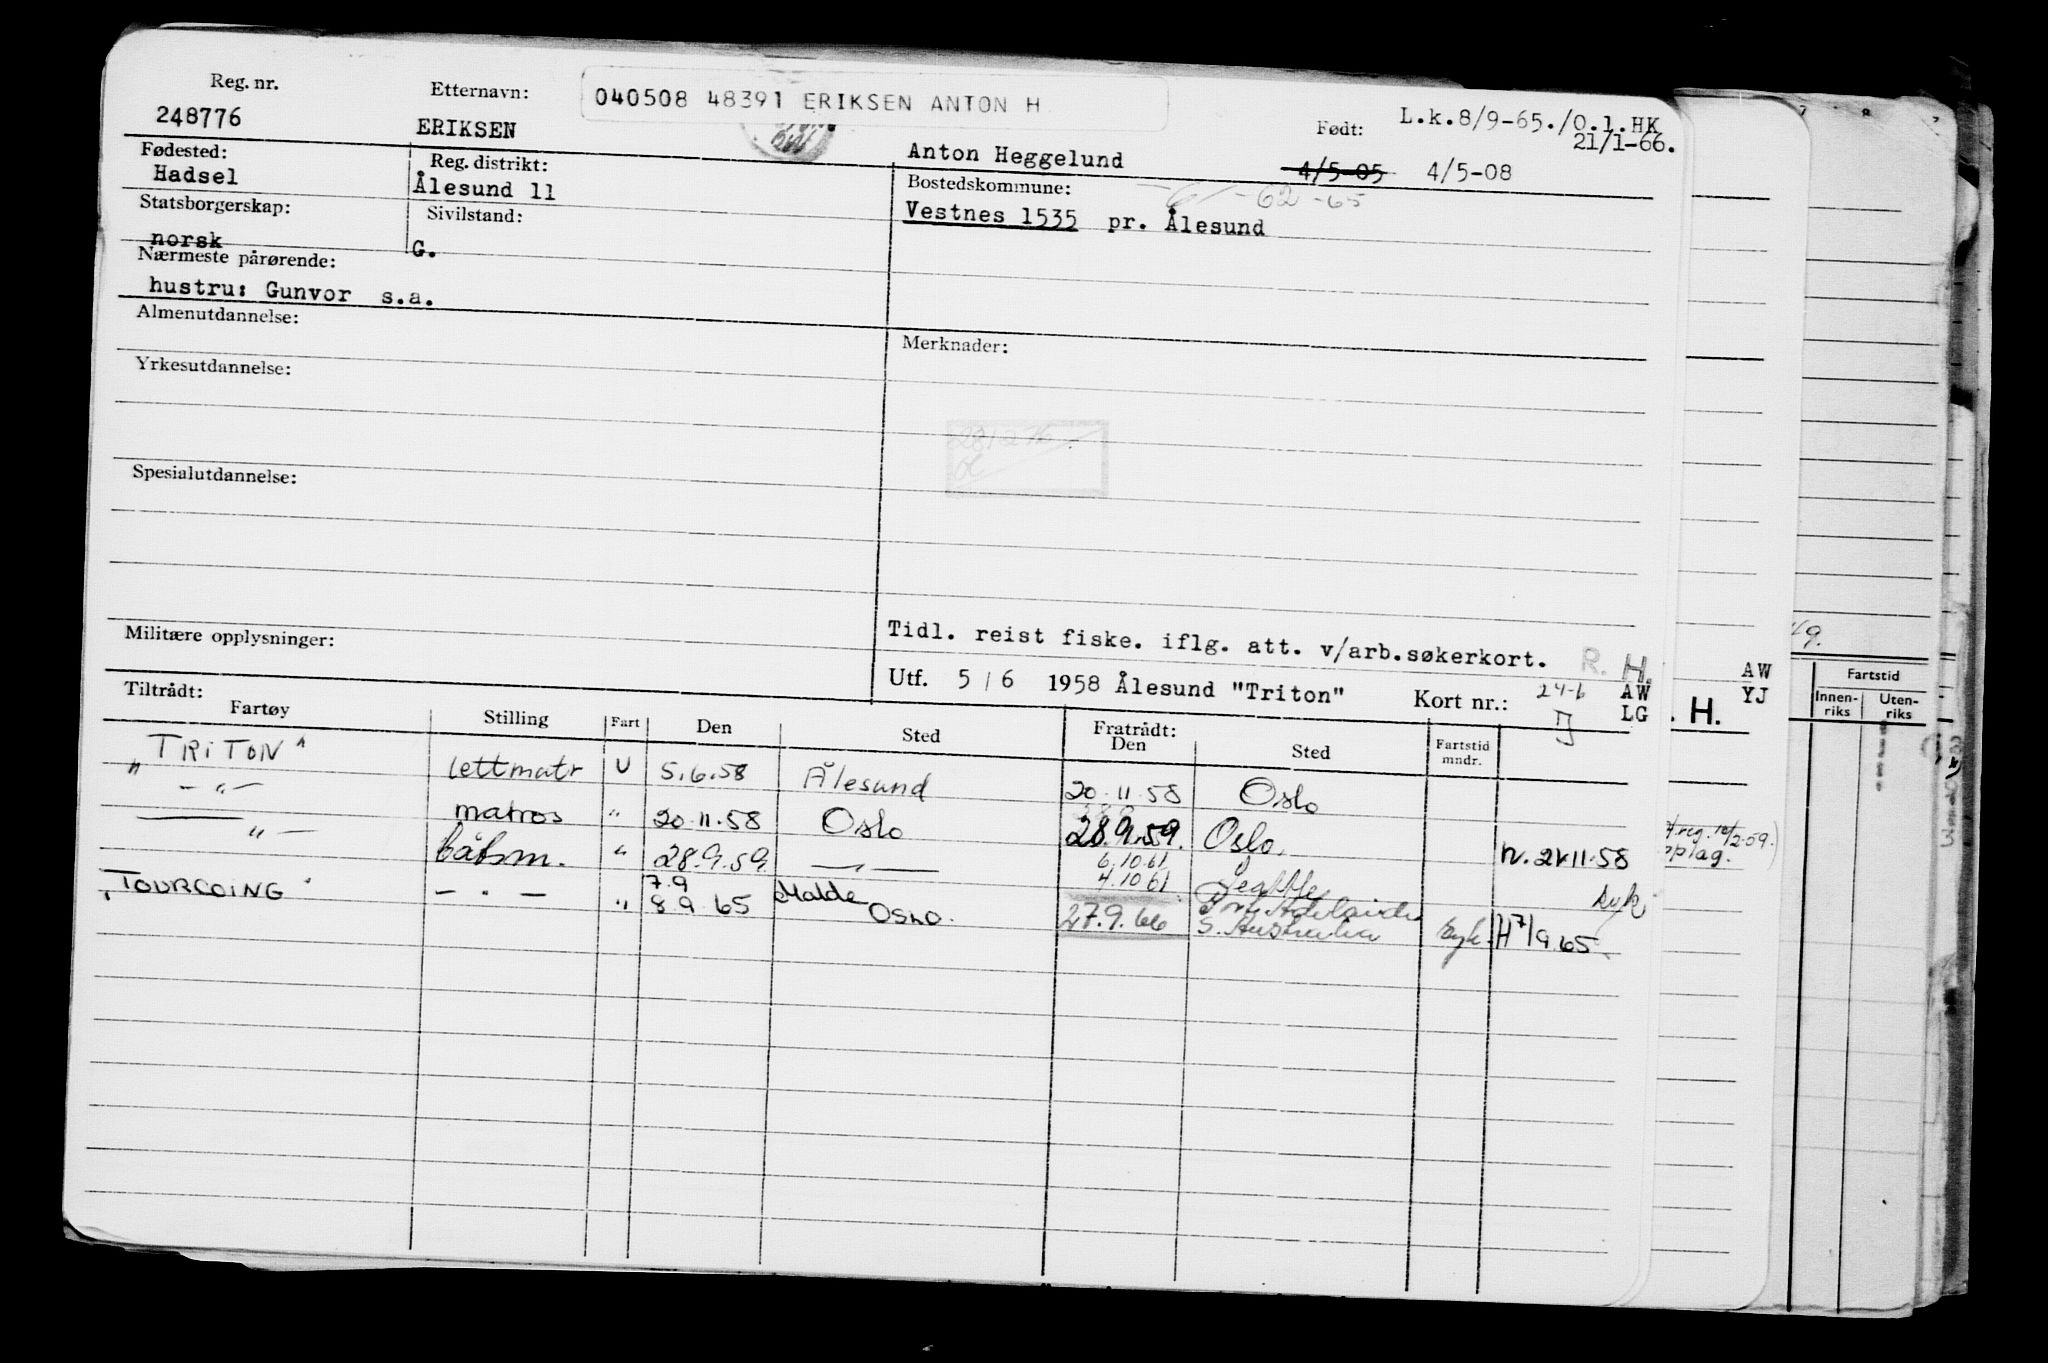 Reg. nr. Etternavn: 040508 48391 ERIKSEN ANTON H
248776 ERIKSEN Anton Heggelund Født: L.k.8/9-65./O.l.HK
21/1-66.
4/5-05 4/5-08
Fødested: Reg. distrikt: Bostedskommune:
Hadsel Ålesund 11 -61-62-65
Statsborgerskap: Sivilstand: Vestnes 1535 pr. Ålesund
norsk G.
Nærmeste pårørende:
hustru: Gunvor s.a.
Almenutdannelse: Merknader:
Yrkesutdannelse:
Spesialutdannelse:
Militære opplysninger: Tidl. reist fiske. iflg. att. v/arb.søkerkort. R. H. AW
Utf. 5/6 1958 Ålesund "Triton" Kort nr.: 24-6 AW YJ
LG . H.
49.
Fartstid
Innen-riks Uten-riks
Tiltrådt: Fratrådt:
Fartøy Stilling Fart Den Sted Den Sted Fartstid mndr.
"TRITON" lettmatr U 5.6.58 Ålesund 20.11.58 Oslo
-"- matros " 20.11.58 Oslo 28.9.59. Oslo. n. 21.11.58
-"- båtsm. " 28.9.59 -"- 6.10.61 Seattle
4.10.61 syk
"TOURCOING" - " - " 7.9 Molde
8.9 65 OSLO. 27.9.66 Port Adelaide S. Australia syk. H 7/9.65.
reg. 10/2-59.)
opplag.